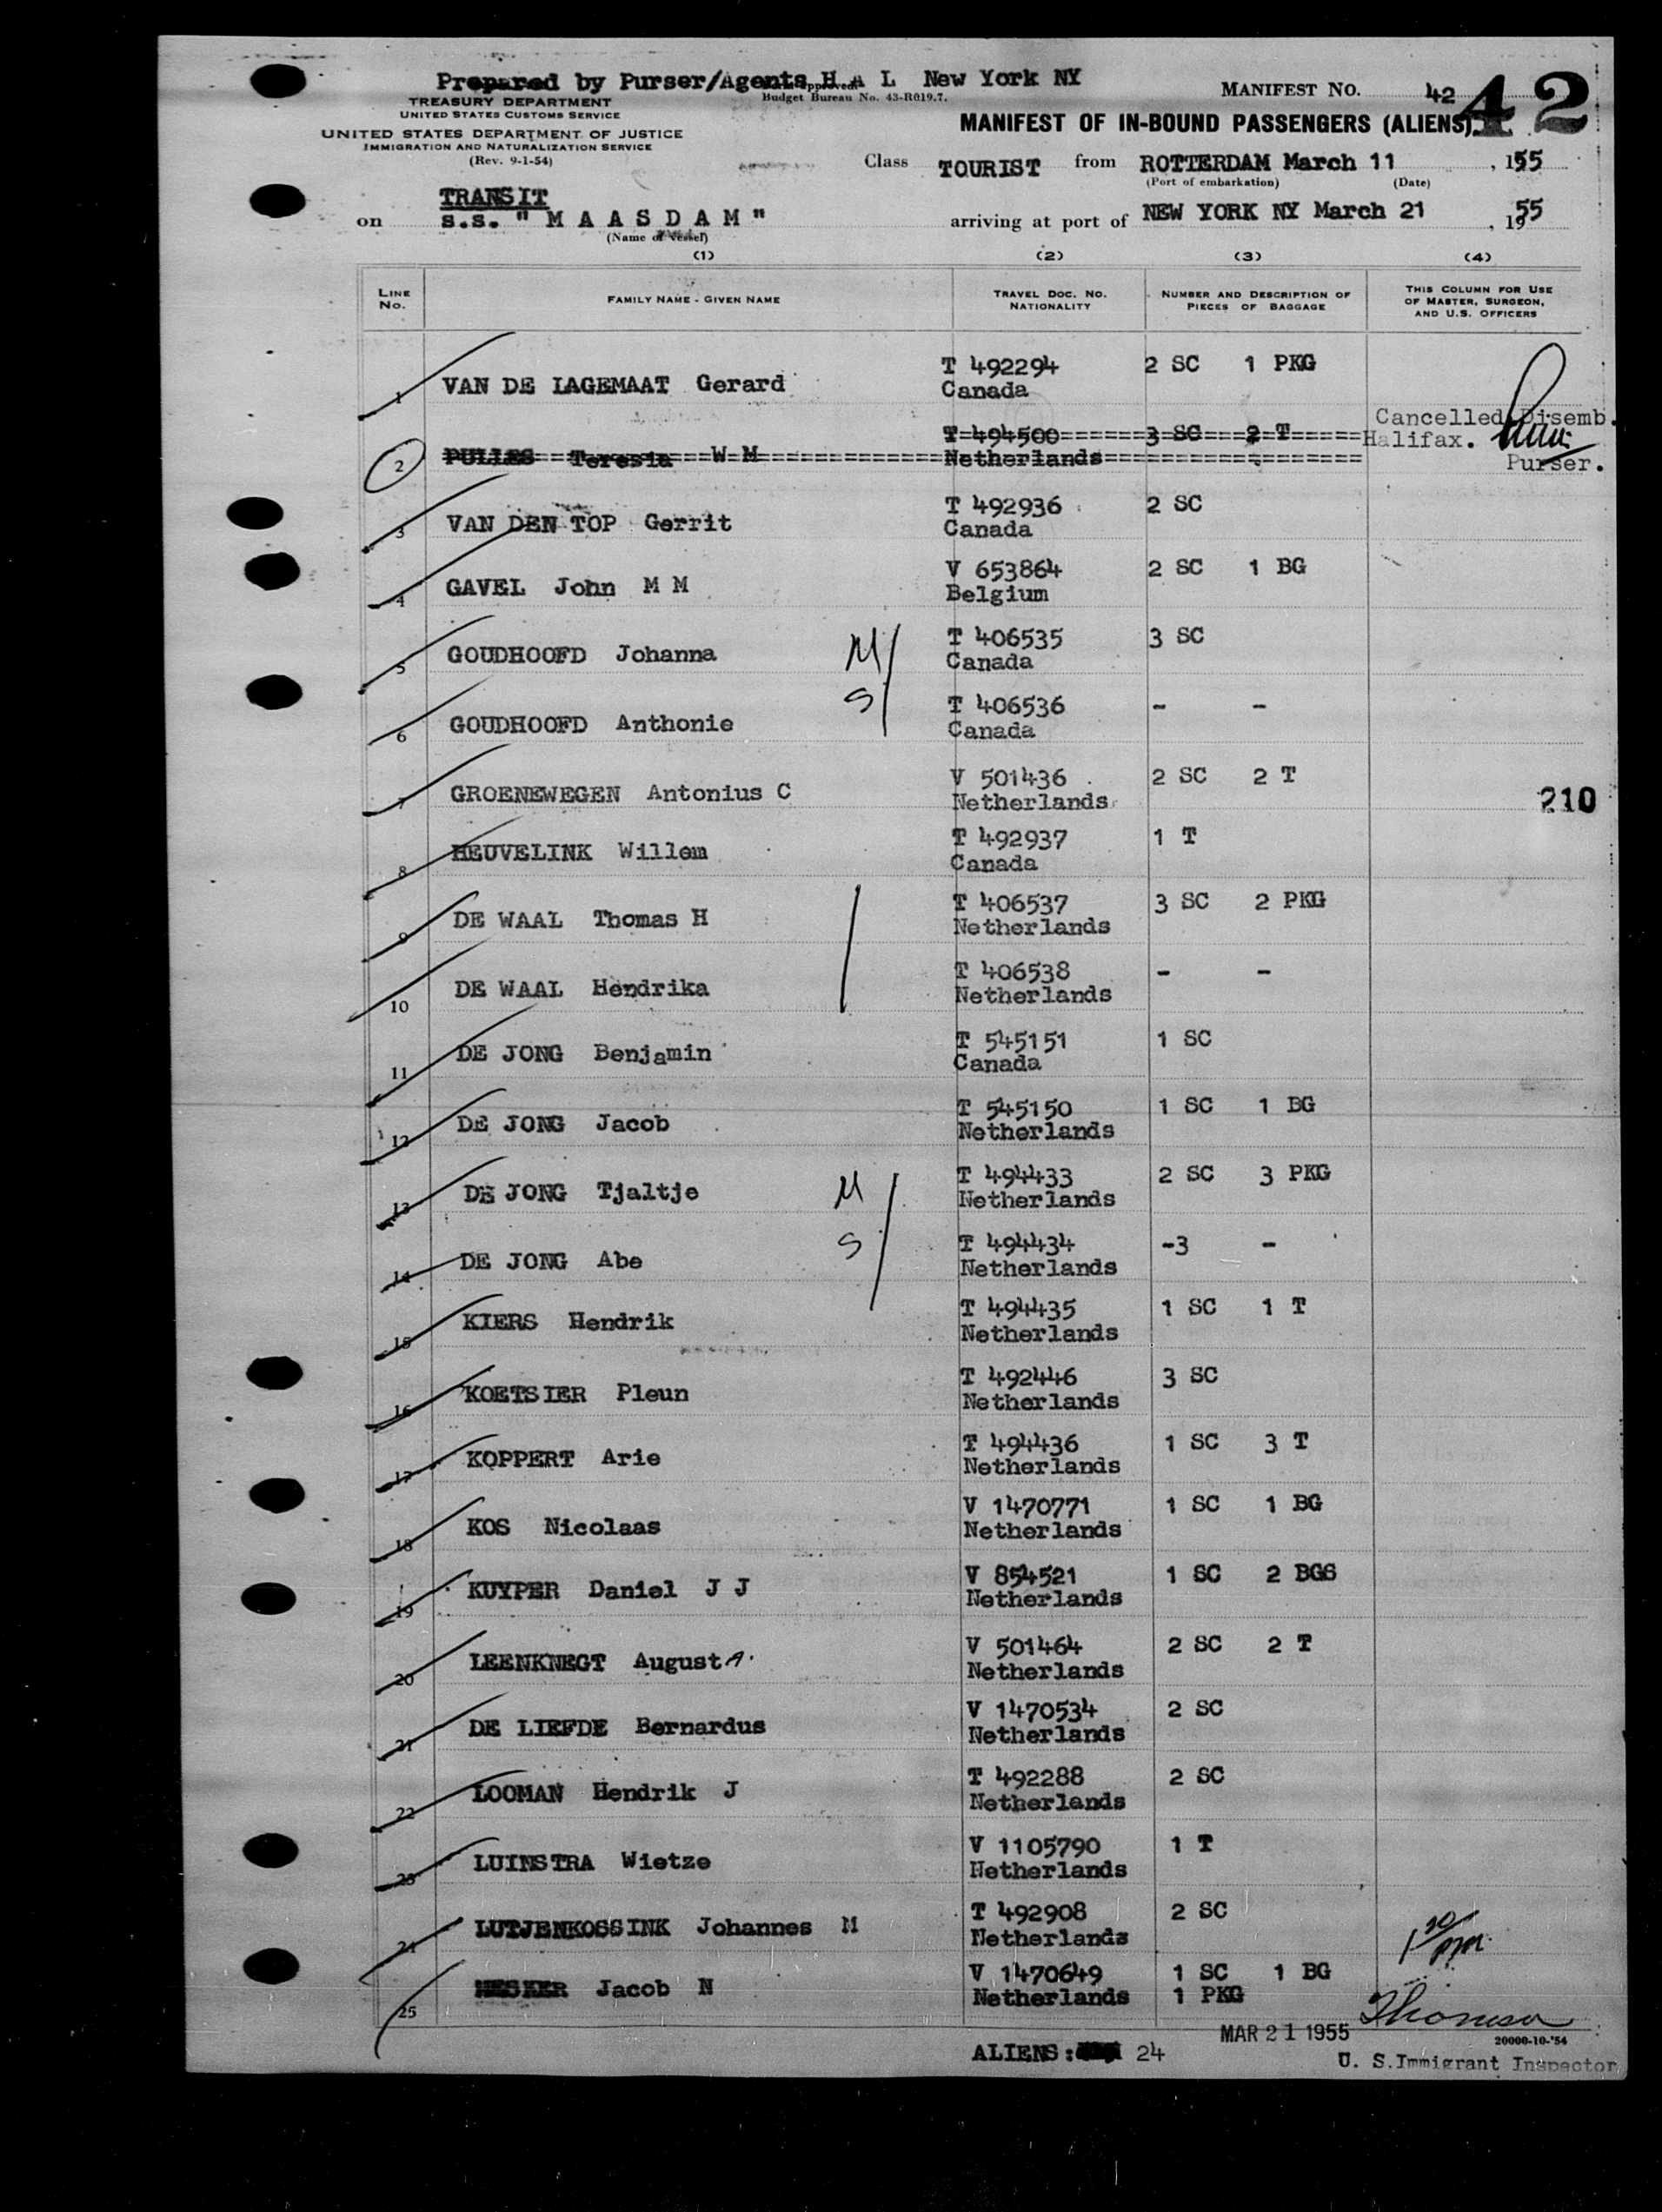 Prepared by Purser/Agents H A L New York NY
Budget Bureau No. 43-R019.7.
MANIFEST NO. 42
42
TREASURY DEPARTMENT
UNITED STATES CUSTOMS SERVICE
UNITED STATES DEPARTMENT OF JUSTICE
IMMIGRATION AND NATURALIZATION SERVICE
(Rev. 9-1-54)
MANIFEST OF IN-BOUND PASSENGERS (ALIENS)
Class TOURIST from ROTTERDAM March 11, 1955
(Port of embarkation) (Date)
TRANSIT
on s.s. "MAASDAM" arriving at port of NEW YORK NY March 21, 1955
(Name of Vessel)
(1) (2) (3) (4)
LINE NO. FAMILY NAME - GIVEN NAME TRAVEL DOC. NO. NATIONALITY NUMBER AND DESCRIPTION OF PIECES OF BAGGAGE THIS COLUMN FOR USE OF MASTER, SURGEON, AND U.S. OFFICERS
1 VAN DE LAGEMAAT Gerard T 492294 Canada 2 SC 1 PKG
2 PULLES Teresia W M T 494500 Netherlands 3 SC 2 T Cancelled Disemb. Halifax. Purser.
3 VAN DEN TOP Gerrit T 492936 Canada 2 SC
4 GAVEL John M M V 653864 Belgium 2 SC 1 BG
5 GOUDHOOFD Johanna M T 406535 Canada 3 SC
6 GOUDHOOFD Anthonie S T 406536 Canada - -
7 GROENEWEGEN Antonius C V 501436 Netherlands 2 SC 2 T 210
8 HEUVELINK Willem T 492937 Canada 1 T
9 DE WAAL Thomas H T 406537 Netherlands 3 SC 2 PKG
10 DE WAAL Hendrika T 406538 Netherlands - -
11 DE JONG Benjamin T 545151 Canada 1 SC
12 DE JONG Jacob T 545150 Netherlands 1 SC 1 BG
13 DE JONG Tjaltje M T 494433 Netherlands 2 SC 3 PKG
14 DE JONG Abe S T 494434 Netherlands -3 -
15 KIERS Hendrik T 494435 Netherlands 1 SC 1 T
16 KOETSIER Pleun T 492446 Netherlands 3 SC
17 KOPPERT Arie T 494436 Netherlands 1 SC 3 T
18 KOS Nicolaas V 1470771 Netherlands 1 SC 1 BG
19 KUYPER Daniel J J V 854521 Netherlands 1 SC 2 BGS
20 LEENKNEGT August A. V 501464 Netherlands 2 SC 2 T
21 DE LIEFDE Bernardus V 1470534 Netherlands 2 SC
22 LOOMAN Hendrik J T 492288 Netherlands 2 SC
23 LUINSTRA Wietze V 1105790 Netherlands 1 T
24 LUTJENKOSSINK Johannes M T 492908 Netherlands 2 SC
25 Jacob N V 1470649 Netherlands 1 SC 1 BG 1 PKG
ALIENS: 24
MAR 21 1955
20000-10-'54
U. S. Immigrant Inspector